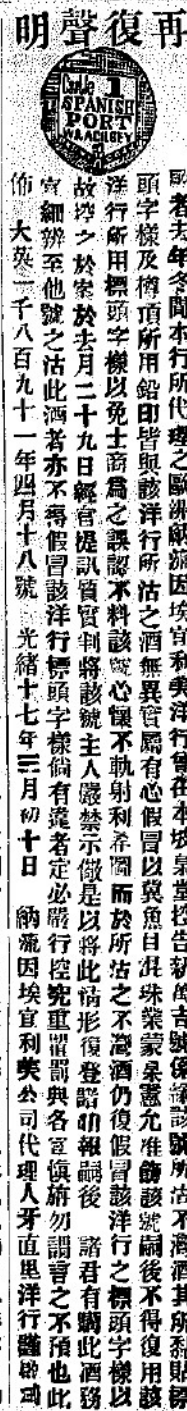 再復聲明
Cande 1
SPANISH
PORT
啟者去年冬間本行所代理之歐洲納流因埃宜利美洋行曾在本坡臬堂控告新萬吉號係緣該號所沽不灣酒其所黏貼標
頭字樣及樽頂所用鉛印皆與該洋行所沽之酒無異實屬有心假冒以冀魚目混珠業蒙臬憲允准飭該號嗣後不得復用該
洋行所用標頭字樣以免士商爲之誤認不料該號心懷不軌射利希圖而於所沽之不灣酒仍復假冒該洋行之標頭字樣以
故控之於案於去月二十九日經官提訊質實判將該號主人嚴禁示儆是以將此情形復登諸叻報嗣後 諸君有購此酒務
宜細辨至他號之沽此酒者亦不得假冒該洋行標頭字樣倘有違者定必嚴行控究重置罰典各宜愼旃勿謂言之不預也此
佈 大英一千八百九十一年四月十八號 光緒十七年三月初十日 納流因埃宜利美公司代理人牙直里洋行謹啟